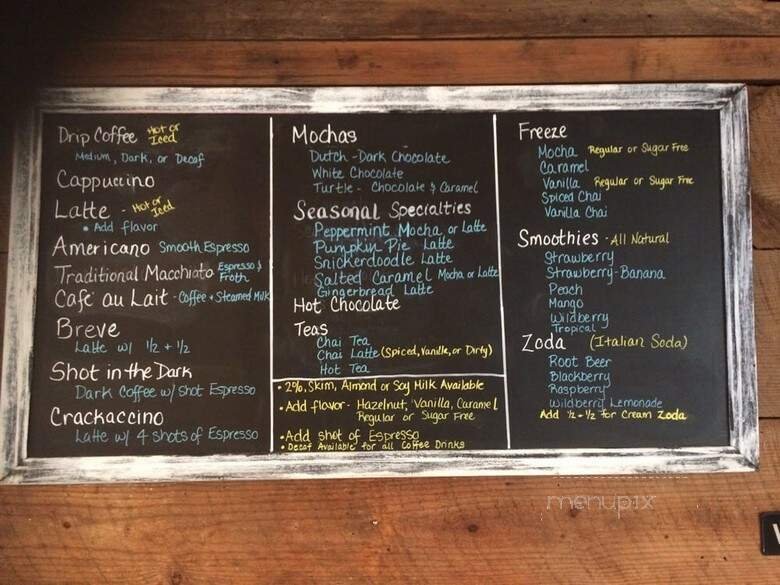 Drip Coffee Hot or Iced
Medium, Dark, or Decaf
Cappuccino
Latte - Hot or Iced
• Add flavor
Americano Smooth Espresso
Traditional Macchiato Espresso & Froth
Café au Lait - Coffee + Steamed Milk
Breve
Latte w/ 1/2 + 1/2
Shot in the Dark
Dark Coffee w/ Shot Espresso
Crackaccino
Latte w/ 4 shots of Espresso
Mochas
Dutch - Dark Chocolate
White Chocolate
Turtle - Chocolate & Caramel
Seasonal Specialties
Peppermint Mocha or Latte
Pumpkin Pie Latte
Snickerdoodle Latte
Salted Caramel Mocha or Latte
Gingerbread Latte
Hot Chocolate
Teas
Chai Tea
Chai Latte (Spiced, Vanilla, or Dirty)
Hot Tea
• 2%, Skim, Almond or Soy Milk Available
• Add flavor - Hazelnut, Vanilla, Caramel
Regular or Sugar Free
• Add shot of Espresso
• Decaf Available for all Coffee Drinks
Freeze
Mocha Regular or Sugar Free
Caramel
Vanilla Regular or Sugar Free
Spiced Chai
Vanilla Chai
Smoothies - All Natural
Strawberry
Strawberry-Banana
Peach
Mango
Wildberry
Tropical
Zoda (Italian Soda)
Root Beer
Blackberry
Raspberry
Wildberry Lemonade
Add 1/2 + 1/2 for Cream Zoda
menupix